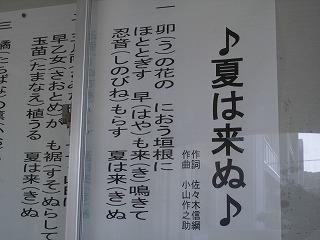 ♪夏は来ぬ♪
作詞 佐々木信綱
作曲 小山作之助
一 卯(う)の花の におう垣根に
ほととぎす 早(はや)も来(き)鳴きて
忍音(しのびね)もらす 夏は来(き)ぬ
早乙女(さおとめ)が も裾(すそ)ぬらして
玉苗(たまなえ)植うる 夏は来(き)ぬ
三